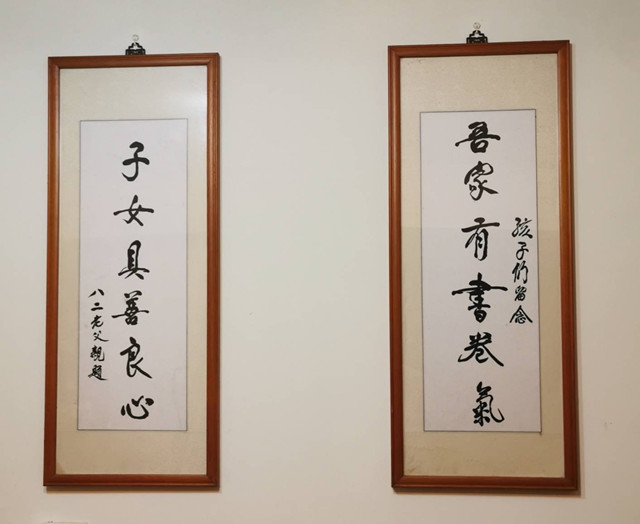 孩子們留念
吾家有書卷氣
子女具善良心
八二老父親題